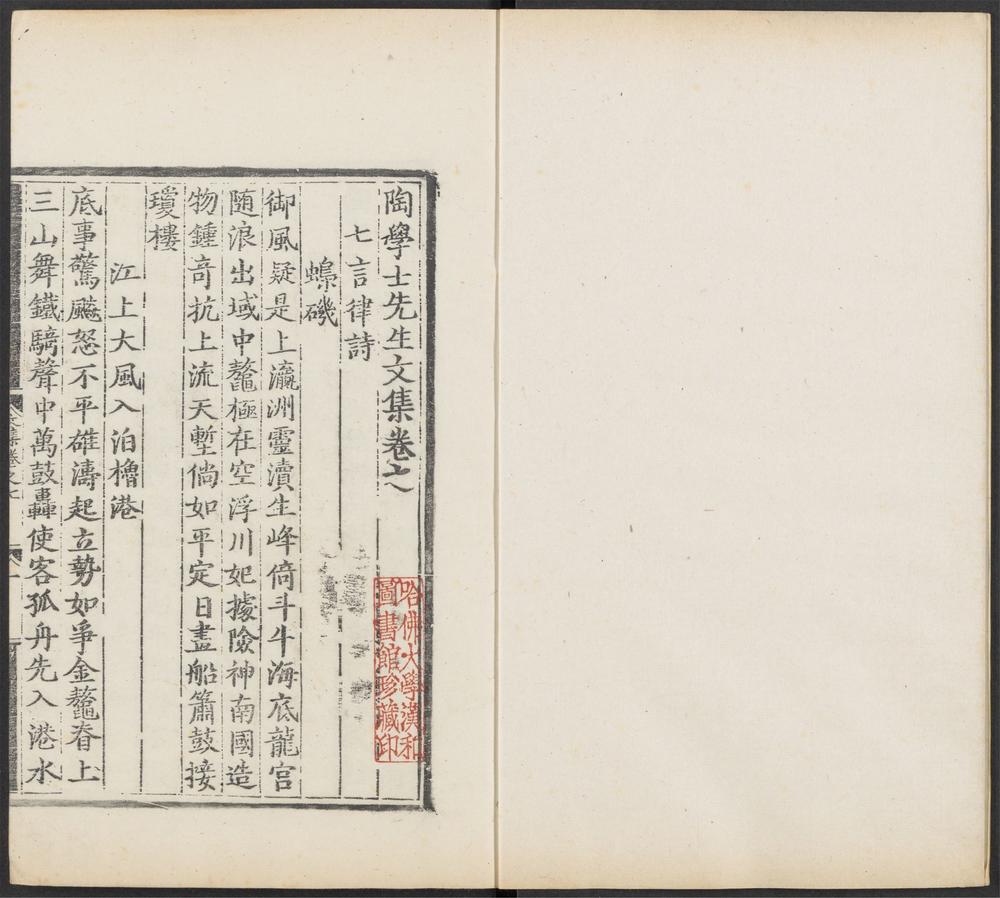 陶學士先生文集卷之
七言律詩
蟂磯
御風疑是上瀛洲靈瀆生峰倚斗牛海底龍宮
隨浪出域中鼇極在空浮川妃據險神南國造
物鍾奇抗上流天塹倘如平定日畫船簫鼓接
瓊樓
江上大風入泊櫓港
底事驚飈怒不平雄濤起立勢如爭金鼇脊上
三山舞鐵騎聲中萬鼓轟使客孤舟先入港水
文集卷之
一
哈佛大學漢和
圖書館珍藏印